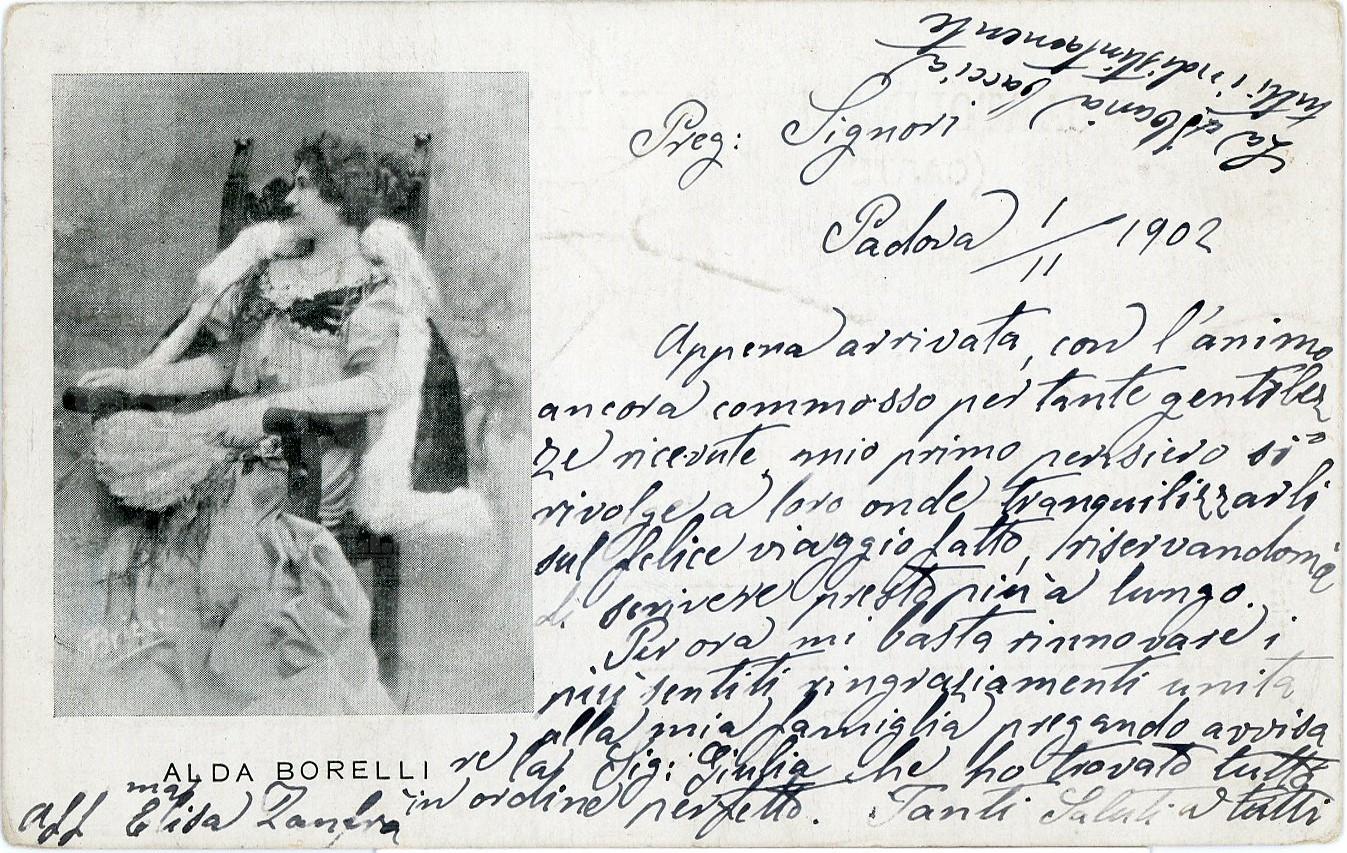 Preg: Signori
Padova 1/11 1902
Appena arrivata, con l'animo
ancora commosso per tante gentilez
ze ricevute, mio primo pensiero si
rivolge a loro onde tranquilizzarli
sul felice viaggio fatto, riservandomi
di scrivere presto più a lungo.
Per ora mi basta rinnovare i
più sentiti ringraziamenti unita
alla mia famiglia pregando avvisa
re la Sig: Giulia che ho trovato tutto
in ordine perfetto. Tanti Saluti a tutti
Aff ma Elisa
La bacia
tutti indistintamente
ALDA BORELLI